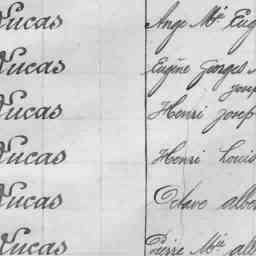 Lucas Ange Mie Eug
Lucas Eugène Georges
Josep
Lucas Henri Josep
Lucas Henri Louis
Lucas Octave Albe
Lucas Pierre Mie Alb